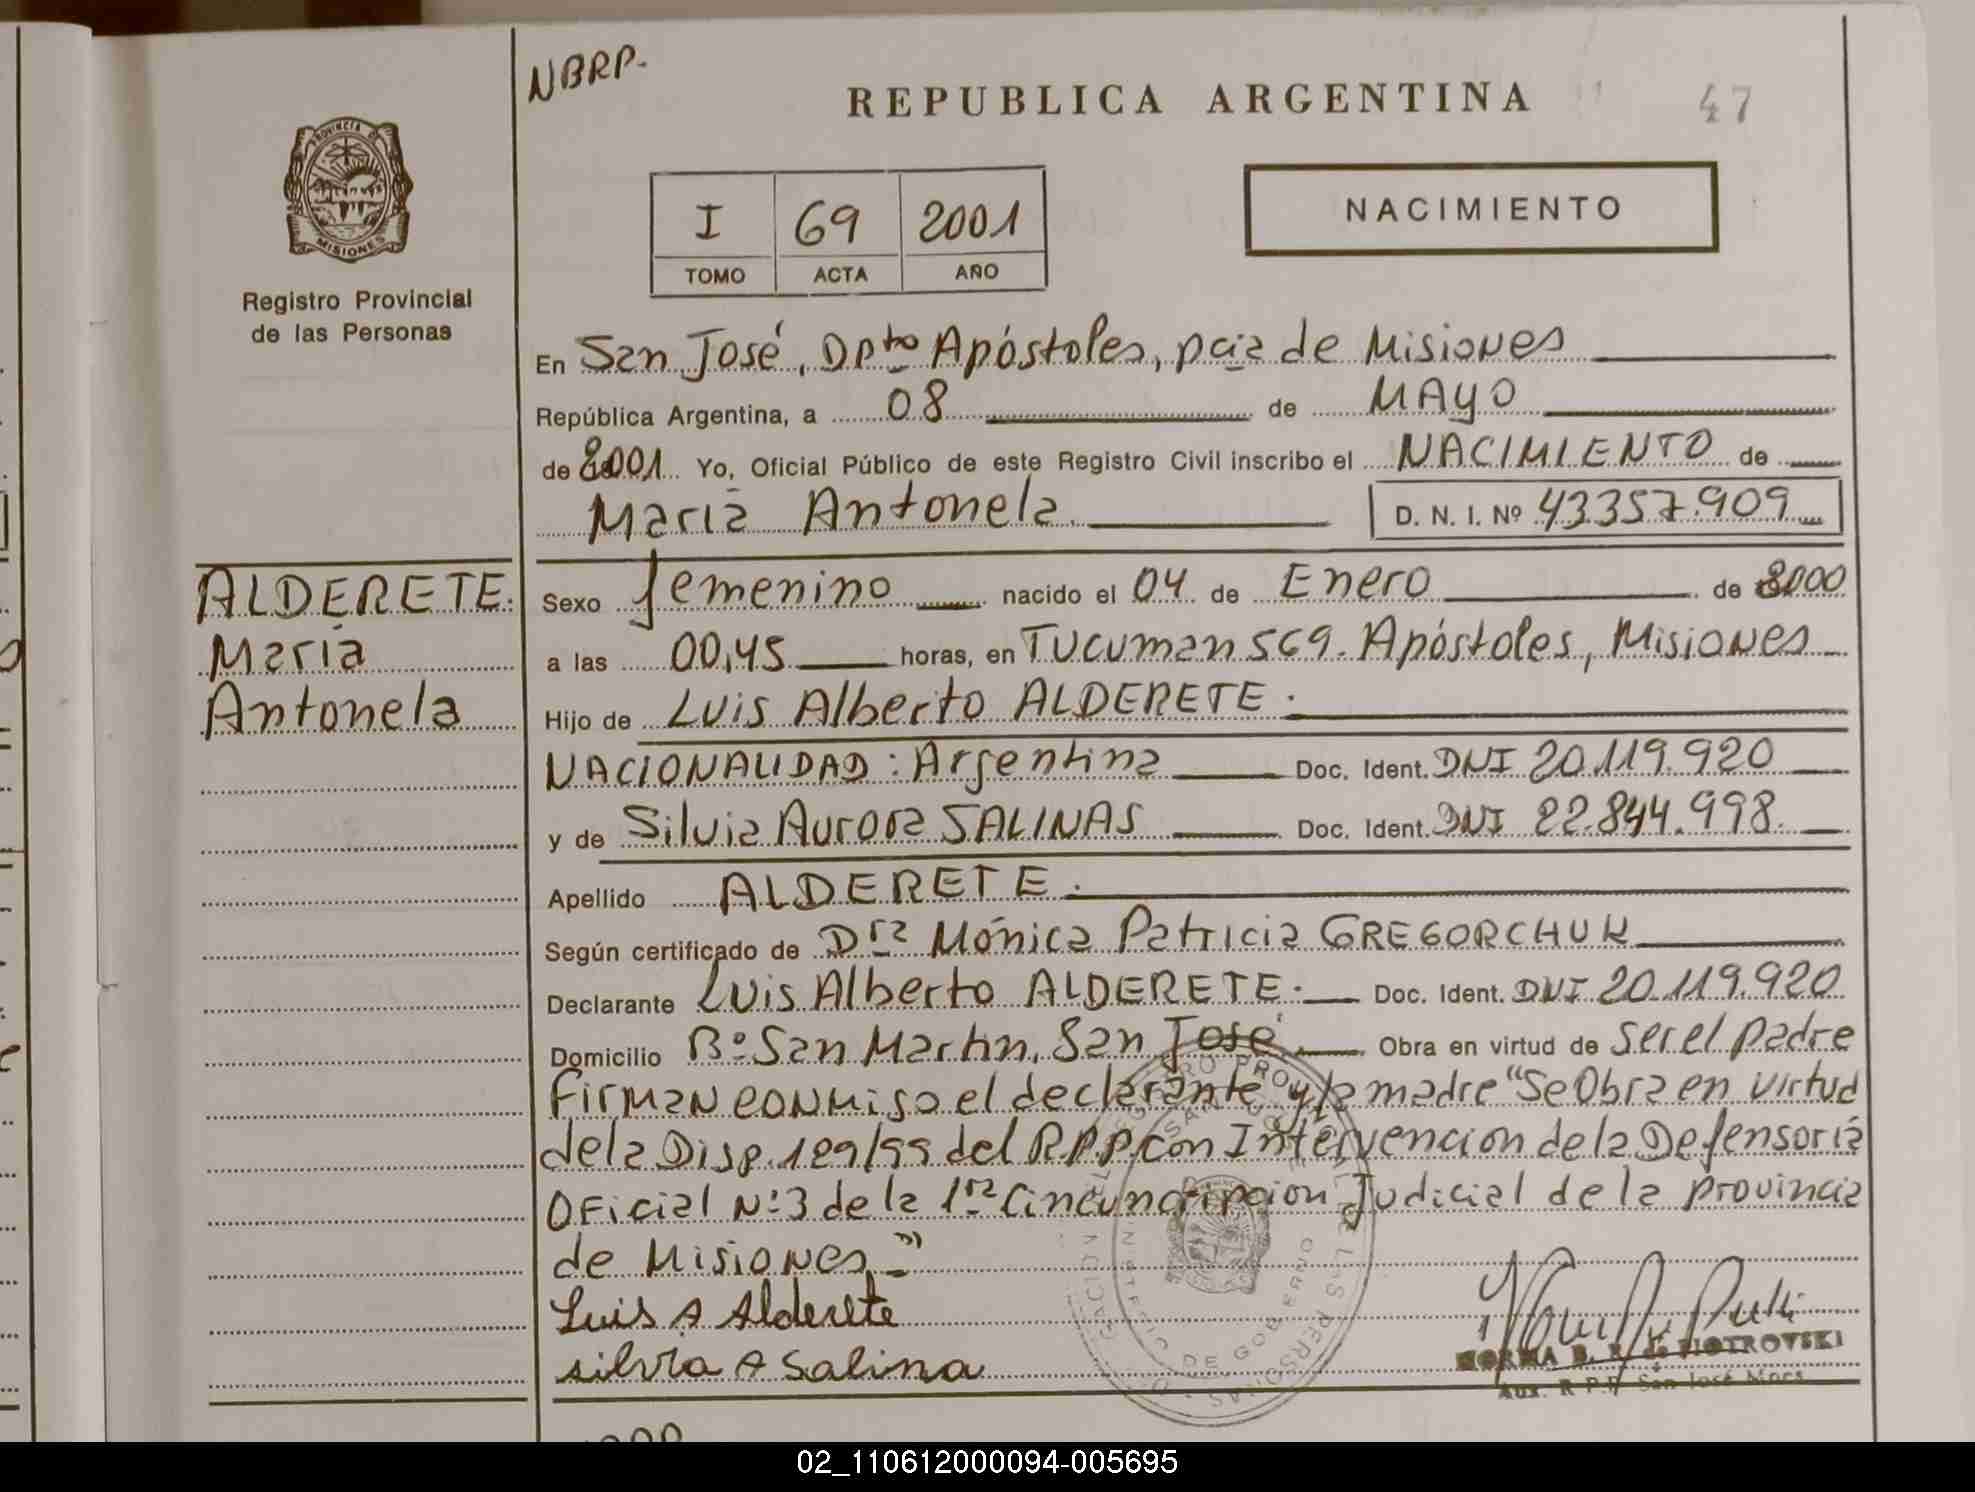 NBRP.
REPUBLICA ARGENTINA
47
PROVINCIA DE MISIONES
Registro Provincial
de las Personas
I 69 2001
TOMO ACTA AÑO
NACIMIENTO
En San José, Dpto Apóstoles, pcia de Misiones
República Argentina, a 08 de MAYO
de 2001 Yo, Oficial Público de este Registro Civil inscribo el NACIMIENTO de
María Antonela. D. N. I. Nº 43357.909
ALDERETE.
María
Antonela
Sexo femenino nacido el 04 de Enero de 2000
a las 00,45 horas, en Tucuman 569. Apóstoles, Misiones
Hijo de Luis Alberto ALDERETE.
NACIONALIDAD: Argentina Doc. Ident. DNI 20.119.920
y de Silvia Aurora SALINAS Doc. Ident. DNI 22.844.998.
Apellido ALDERETE.
Según certificado de Dra Mónica Patricia GREGORCHUK
Declarante Luis Alberto ALDERETE. Doc. Ident. DNI 20.119.920
Domicilio Bº San Martin, San José. Obra en virtud de ser el padre
Firman conmigo el declarante y la madre "Se Obra en virtud
de la Disp. 129/99 del RPP, con Intervencion de la Defensoría
Oficial Nº 3 de la 1ra Circunscripcion Judicial de la provincia
de Misiones.-"
Luis A Alderete
silvia A Salina
NORMA B. de PIOTROVSKI
Aux. R.P.P. San José Mnes.
02_110612000094-005695